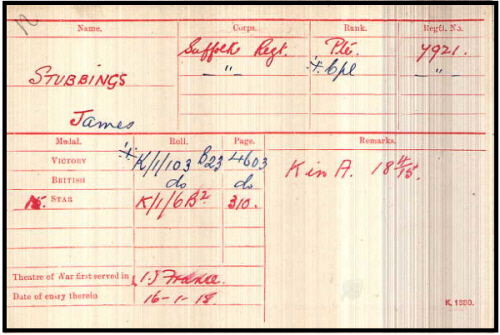 Name. Corps. Rank. Regtl. No.
Suffolk Regt. Pte. 7921.
STUBBINGS — " — Cpl — " —
James
Medal. Roll. Page. Remarks.
VICTORY K/1/103 B23 4603
BRITISH do do K in A. 18
15 STAR K/1/6B² 310.
Theatre of War first served in France.
Date of entry therein 16-1-15
K. 1380.